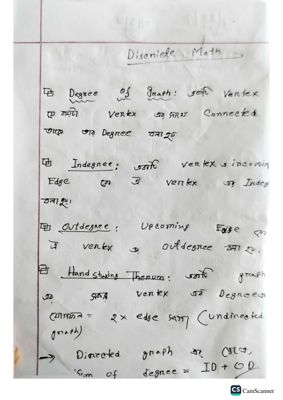 Discrete Math
Degree of Graph: একটি vertex
যে কয়টা vertex এর সাথে Connected
তাকে তার Degree বলা হয়
Indegree: একটি vertex এ incomin
Edge কে ঐ vertex এর Indeg
বলা হয়।
Outdegree: Upcoming Edge কে
ঐ vertex এ outdegree বলা হয়।
Hand Shaking Theorem: একটি graph
এর সকল vertex এর Degree এর
যোগফল = 2 x edge সংখ্যা (Undirected
graph)
→ Directed graph এর ক্ষেত্রে,
Sum of degree = ID + OD
CS CamScanner